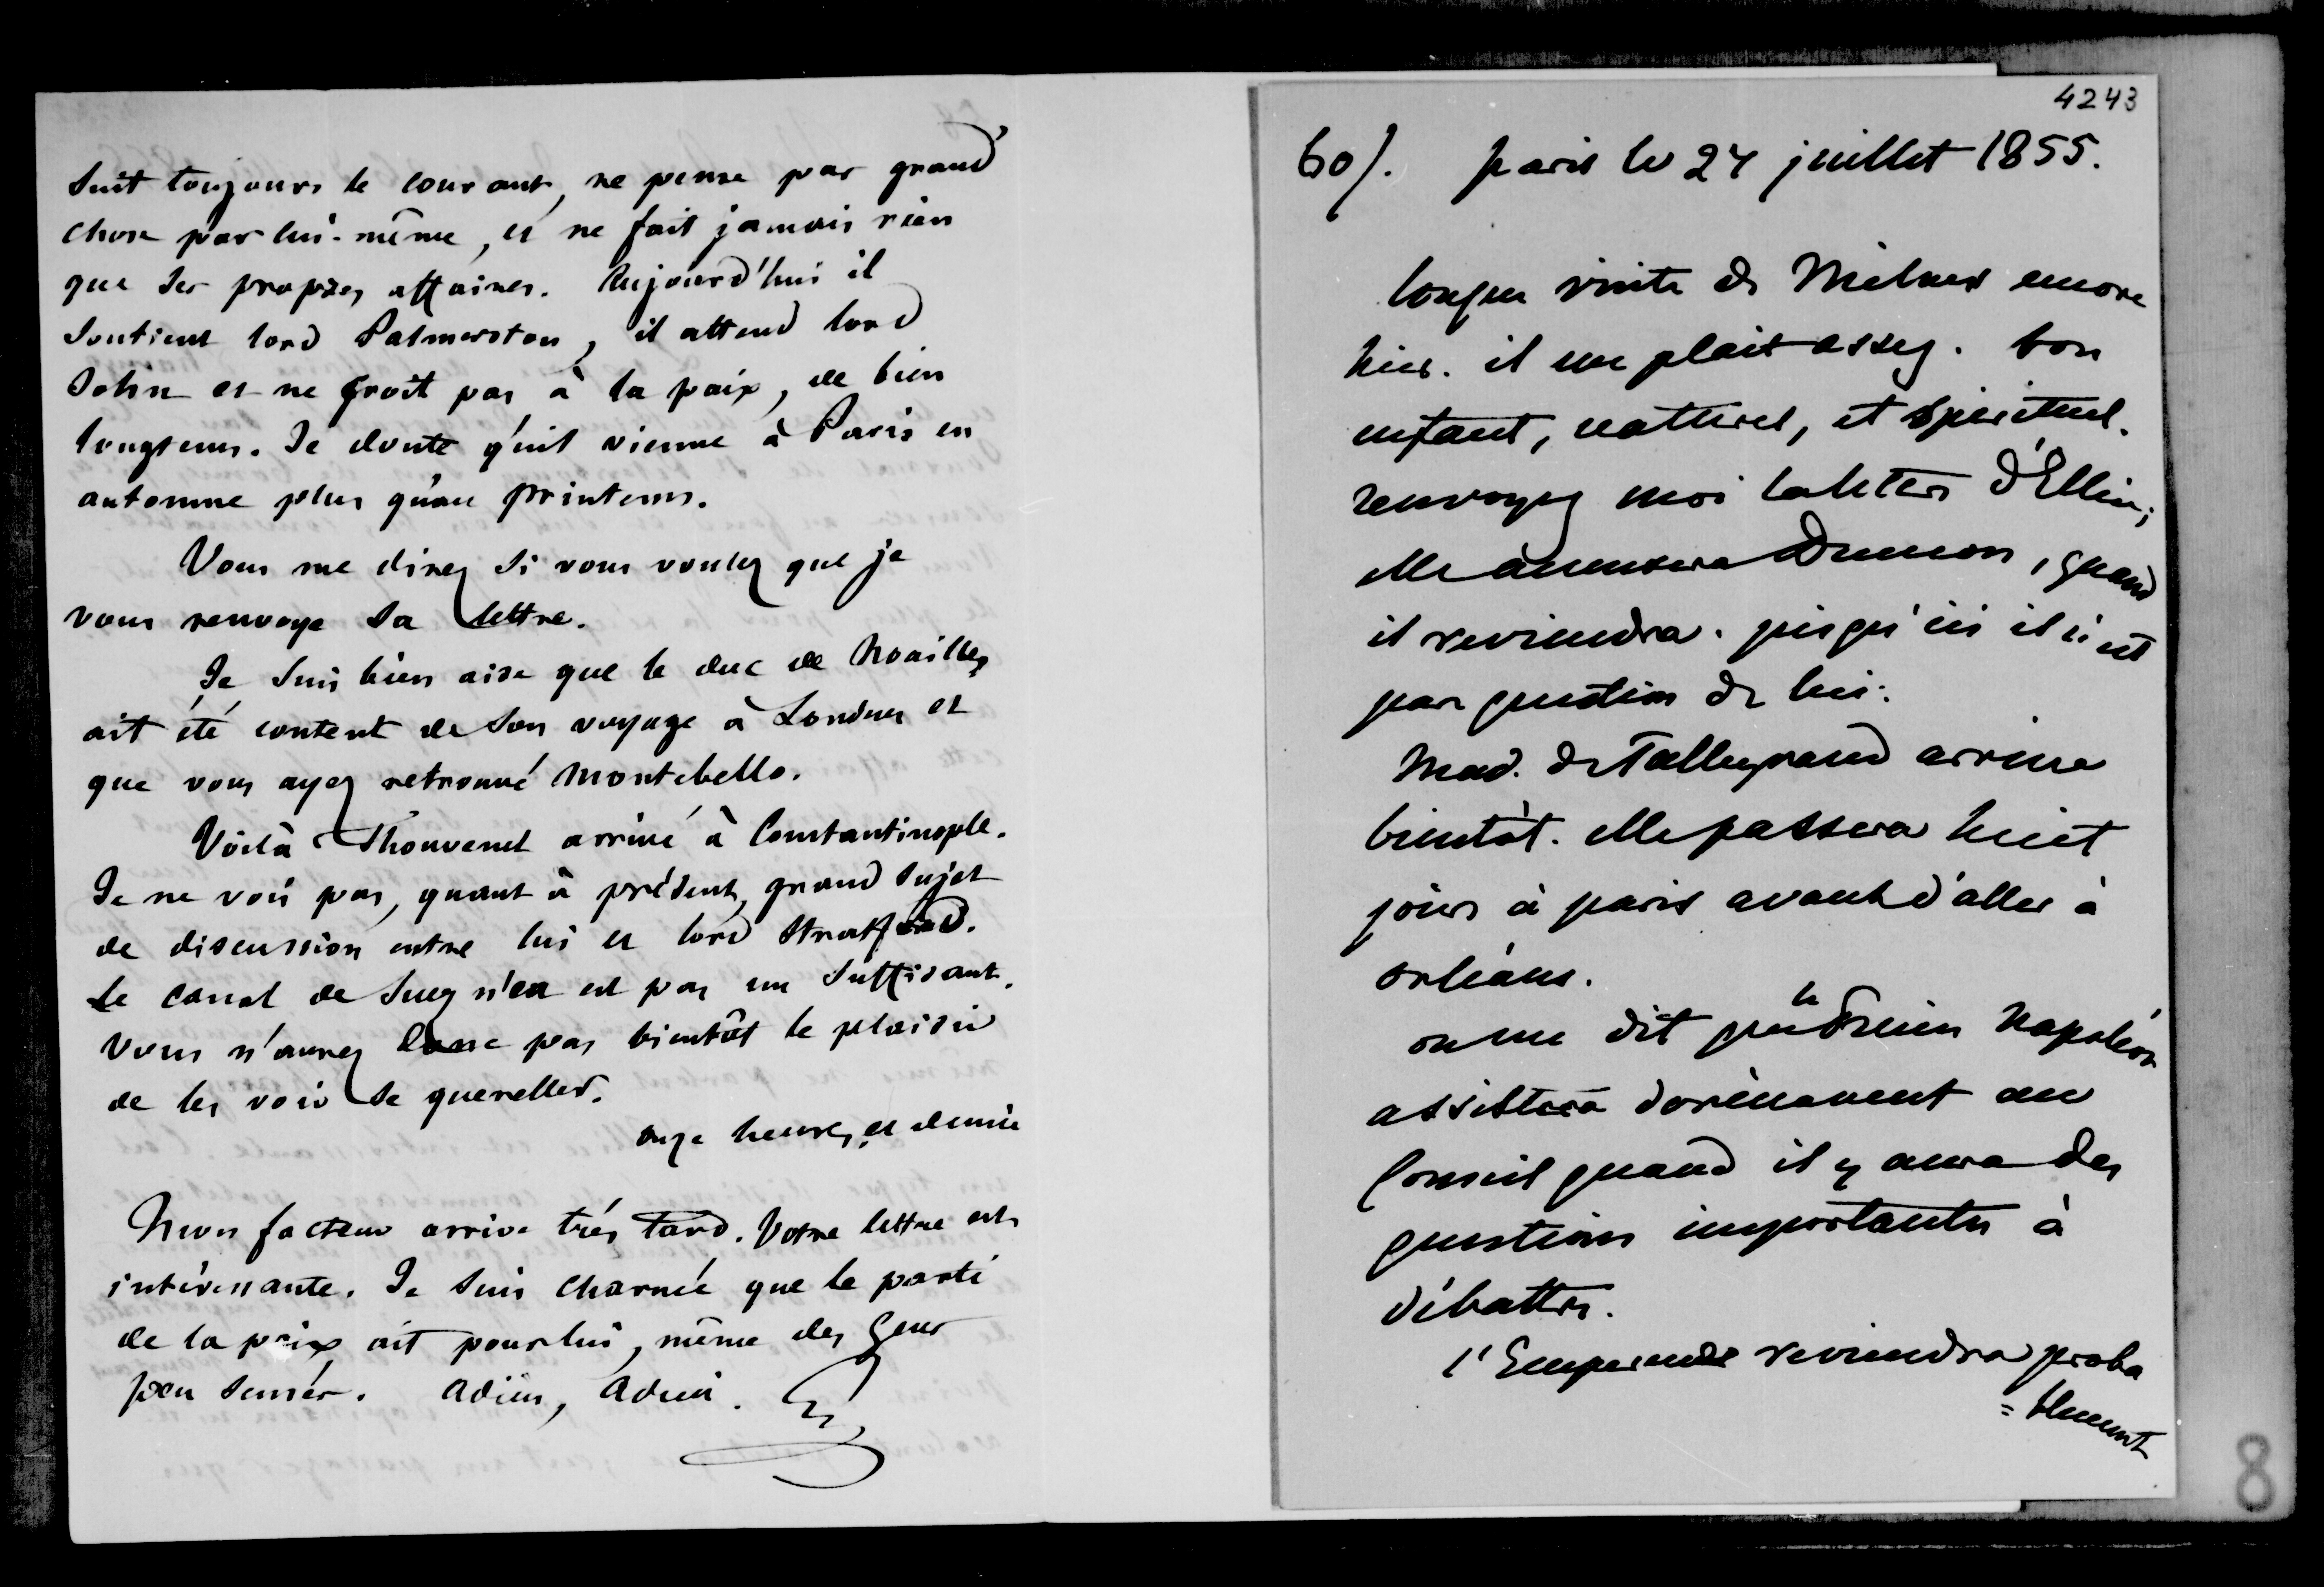 suit toujours le courant, ne pense pas grand
chose par lui-même, et ne fait jamais rien
que ses propres affaires. Aujourd'hui il
soutient lord Palmerston, il attend lord
John et ne croit pas à la paix, de bien
longtems. Je doute qu'il vienne à Paris en
automne plus qu'au printems.
Vous me direz si vous voulez que je
vous renvoye sa lettre.
Je suis bien aise que le duc de Noailles
ait été content de son voyage à Londres et
que vous ayez retrouvé Montebello.
Voilà Thouvenel arrivé à Constantinople.
Je ne vois pas, quant à présent, grand sujet
de discussion entre lui et lord Stratford.
Le canal de Suez n'en est pas un suffisant.
Vous n'aurez donc pas bientôt le plaisir
de les voir se quereller.
onze heures et demie
Mon facteur arrive très tard. Votre lettre est
intéressante. Je suis charmé que le parti
de la paix ait pour lui, même des gens
peu sensés. Adieu, Adieu. G
4243
60/. paris le 24 juillet 1855.
longue visite de Milnes encore
hier. il me plait assez. bon
enfant, naturel, et spirituel.
renvoyez moi la lettre d'Ellice,
elle amusera Dumon, quand
il reviendra. jusqu'ici il n'est
pas question de lui.
Mad. de Talleyrand arrive
bientôt. elle passera huit
jours à paris avant d'aller à
orléans.
on me dit que le Prince Napoléon
assistera dorénavant au
Conseil quand il y aura des
questions importantes à
débattre.
l'Empereur reviendra proba
=blement
8